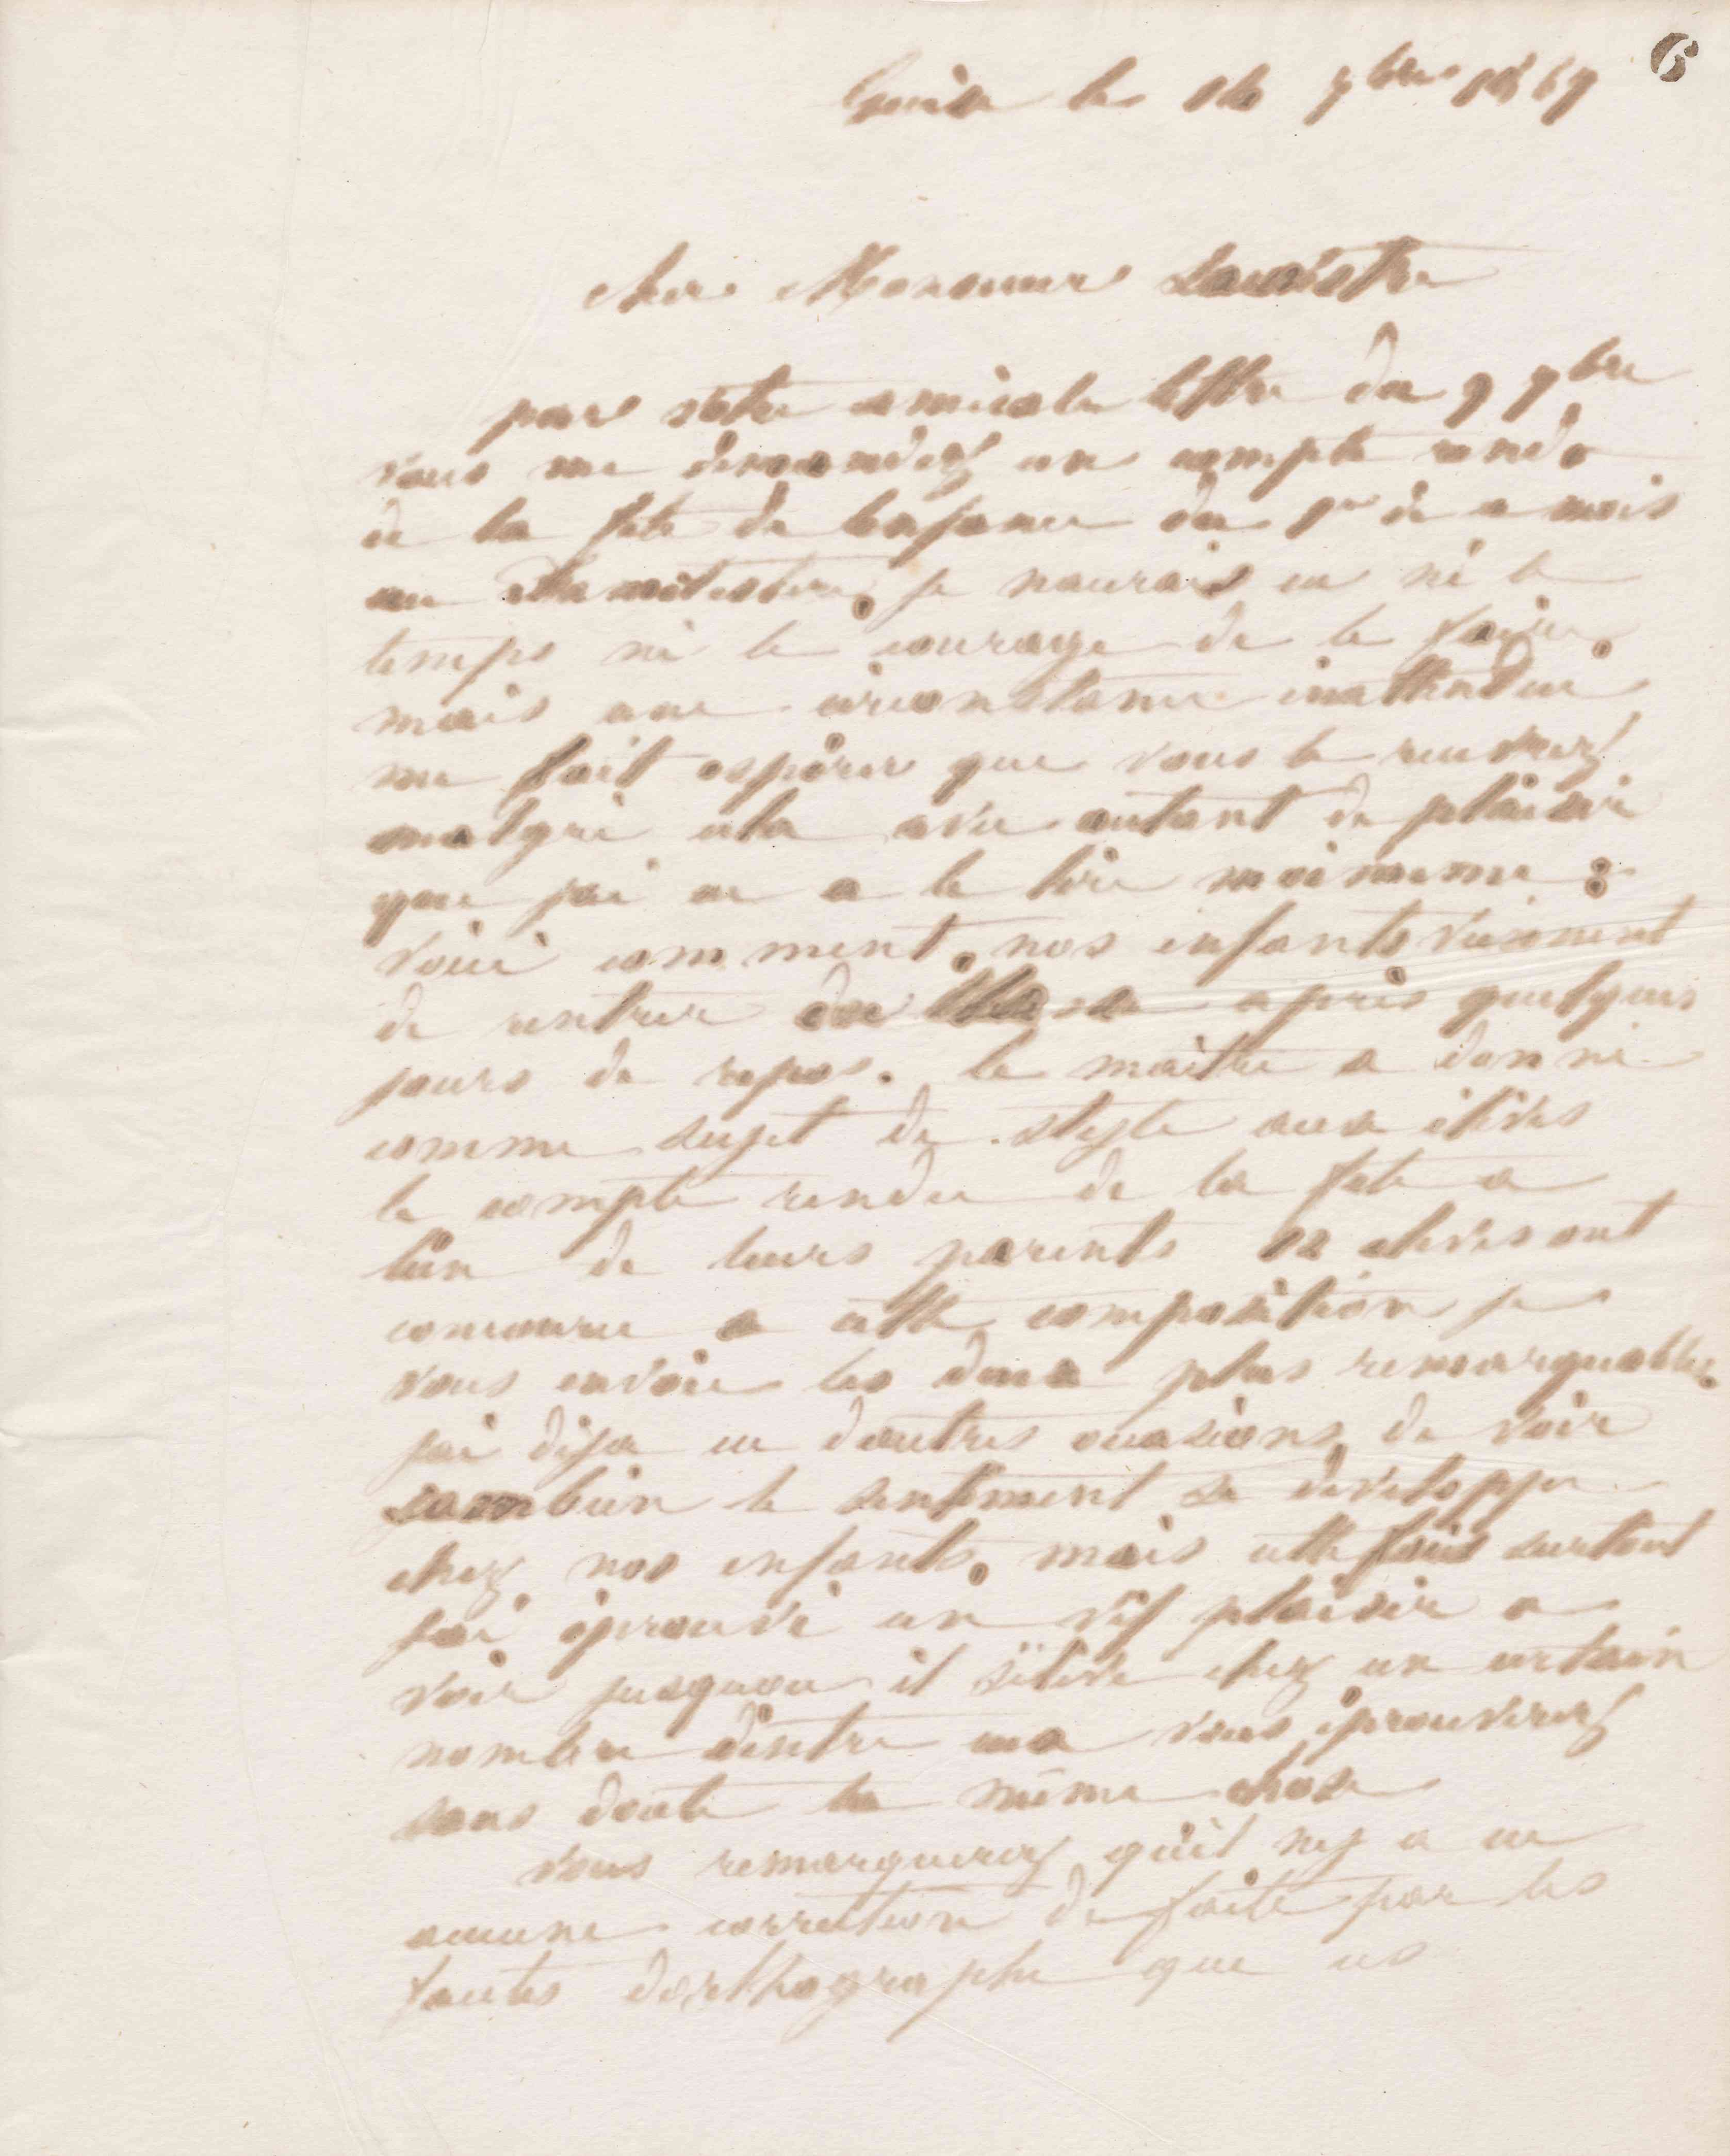 6
Guise le 16 7bre 1867
cher Monsieur
par votre amicale lettre du 9 7bre
vous me demandez un compte rendu
de la fete de lenfance du 1er de ce mois
au Familistere, je naurais eu ni le
temps ni le courage de le faire,
mais une circonstance inattendue
me fait espérer que vous le recevrez
malgré cela avec autant de plaisir
que jai eu a le lire moi meme :
voici comment, nos enfants viennent
de rentrer en classe après quelques
jours de repos. le maître a donné
comme sujet de style aux élèves
le compte rendu de la fete a
lun de leurs parents 12 eleves ont
concouru a cette composition je
vous envoie les deux plus remarquables,
jai déja eu dautres occasions de voir
combien le sentiment se développe
chez nos enfants, mais cette fois surtout
jai éprouvé un vif plaisir a
voir jusquou il séléve chez un certain
nombre dentre eux vous éprouverez
sans doute la même chose
vous remarquerez quil ny a eu
aucune correction de faite par les
fautes dorthographe que ces